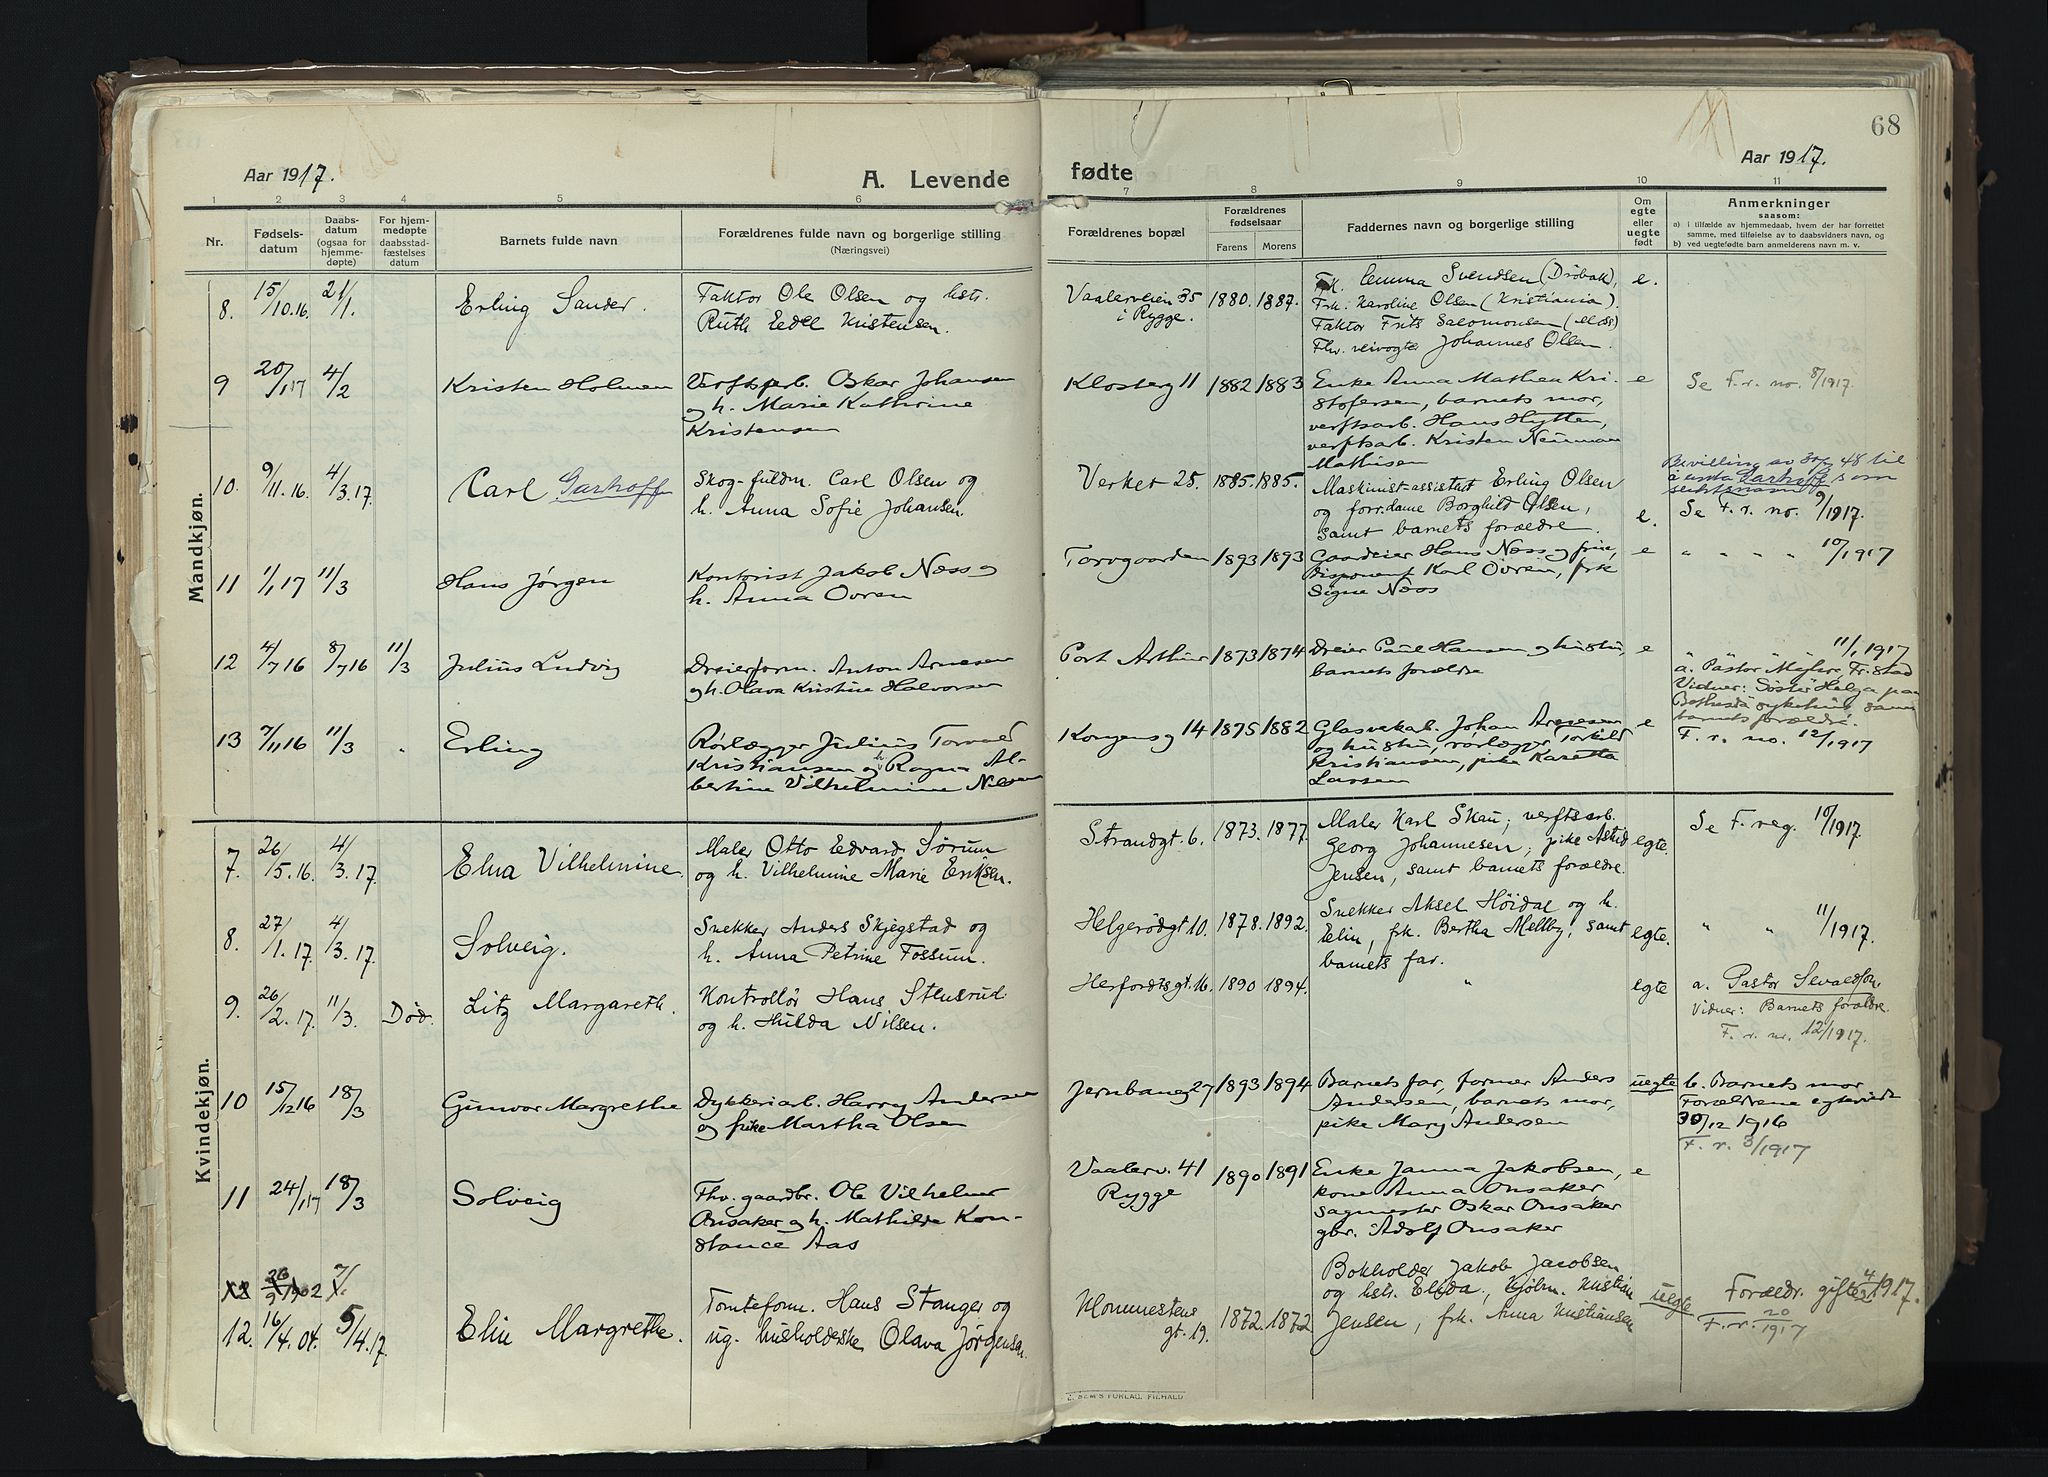 Aar 1917.
A. Levende
1 2 3 4 5 6
Nr.
Fødsels-
datum
Daabs-
datum
(ogsaa for
hjemme-
døpte)
For hjem-
medøpte
daabsstad-
fæstelses
datum
Barnets fulde navn
Forældrenes fulde navn og borgerlige stilling
(Næringsvei)
Mandkjøn.
8. 15/10.16. 21/1. Erling Sander. Faktor Ole Olsen og hstr.
Ruth Edel Kristensen.
9 20/1 17 4/2 Kristen Holmen Verftsarb. Oskar Johansen
og h. Marie Kathrine
Kristensen
10. 9/11.16. 4/3.17. Carl Garhoff Skog-fuldm. Carl Olsen og
h. Anna Sofie Johansen.
11 1/1 17 11/3 Hans Jørgen Kontorist Jakob Næss og
h. Anna Ovren
12 4/7 16 8/7 16 11/3 Julius Ludvig Dreierform. Anton Arnesen
og h. Olava Kristine Halvorsen
13 7/11 16 11/3 Erling Rørlægger Julius Torvald
Kristiansen og h. Ragna Al-
bertine Vilhelmine Nilsen
Kvindekjøn.
7. 26/5.16. 4/3.17. Elna Vilhelmine Maler Otto Edvard Sørum
og h. Vilhelmine Marie Eriksen.
8. 27/1.17. 4/3.17. Solveig. Snekker Anders Skjegstad og
h. Anna Petrine Fossum.
9. 26/2.17. 11/3. Død. Litz Margareth. Kontrollør Hans Stensrud
og h. Hulda Nilsen.
10 15/12 16 18/3 Gunvor Margrethe Dykkeriarb. Harry Andersen
og pike Martha Olsen
11 24/1 17 18/3 Solveig Fhv. gaardbr. Ole Vilhelm
Onsaker og h. Mathilde Kon-
stance Aas
12. 16/4.04. 5/4.17. Elin Margrethe. Tomteform. Hans Stanger og
ug. husholderske Olava Jørgensen.
68
Aar 1917.
fødte
7 8 9 10 11
Forældrenes bopæl
Forældrenes
fødselsaar
Farens Morens
Faddernes navn og borgerlige stilling
Om
egte
eller
uegte
født
Anmerkninger
saasom:
a) i tilfælde av hjemmedaab, hvem der har forrettet
samme, med tilføielse av to daabsvidners navn, og
b) ved uegtefødte barn anmelderens navn m. v.
Vaalerveien 35
i Rygge. 1880. 1887. Frk. Emma Svendsen (Drøbak), e.
Frk. Karoline Olsen (Kristiania).
Faktor Frits Salomonsen (Moss)
Fhv. veivogter Johannes Olsen.
Klosterg 11 1882 1883 Enke Anna Mathea Kri- e Se F. r. no. 8/1917.
stofersen, barnets mor,
verftsarb. Hans Hytten,
verftsarb. Kristen Neuman
Mathisen
Verket 25. 1885. 1885. Maskinist-assistent Erling Olsen
og forr.dame Borghild Olsen,
samt barnets forældre. e.
Bevilling av 30/7 48 til
å anta Garhoff som
slektsnavn
Se F. r. no. 9/1917.
Torvgaarden 1893 1893 Gaardeier Hans Næss og frue, e " " " " 10/1917
disponent Karl Ovren, frk
Signe Næss
Port Arthur 1873 1874 Dreier Paul Hansen og hustru, e 11/1917
barnets forældre
a. Pastor Myhre, Fr.stad
Vidner: Søster Helga paa
Bethesda sykehus samt
barnets forældre.
Kongensg 14 1875 1882 Glasverkarb. Johan Arnesen e F. r. no. 12/1917
og hustru, rørlægger Torkild
Kristiansen, pike Karetta
Larsen
Strandgt. 6. 1873. 1877. Maler Karl Skau; verftsarb.
Georg Johannesen; pike Astrid egte. Se F. reg. 10/1917.
Jensen, samt barnets forældre.
Helgerødgt 10. 1878. 1892. Snekker Aksel Høidal og h.
Elin, frk. Bertha Mellby, samt egte. " " 11/1917.
barnets far.
Herfordtsgt. 16. 1890 1894. " egte a. Pastor Sevaldson.
Vidner: Barnets forældre.
F. r. nr. 12/1917.
Jernbaneg 27 1893 1894 Barnets far, former Anders uegte b. Barnets mor
Andersen, barnets mor,
pike Mary Andersen
Forældrene egteviede
30/12 1916
F. r. 3/1917
Vaalerv. 41
Rygge 1890 1891 Enke Janna Jakobsen, e
kone Anna Onsaker,
sagmester Oskar Onsaker
gbr. Adolf Onsaker
Kommestens
gt. 19. 1872. 1872 Bokholder Jakob Jacobsen
og hstr. Elida, Kristian
Jensen, frk. Anna Kristiansen uegte Forældr. gifte 4/2 1917.
F. r. 20/1917
J. SEM'S FORLAG, FR.HALD